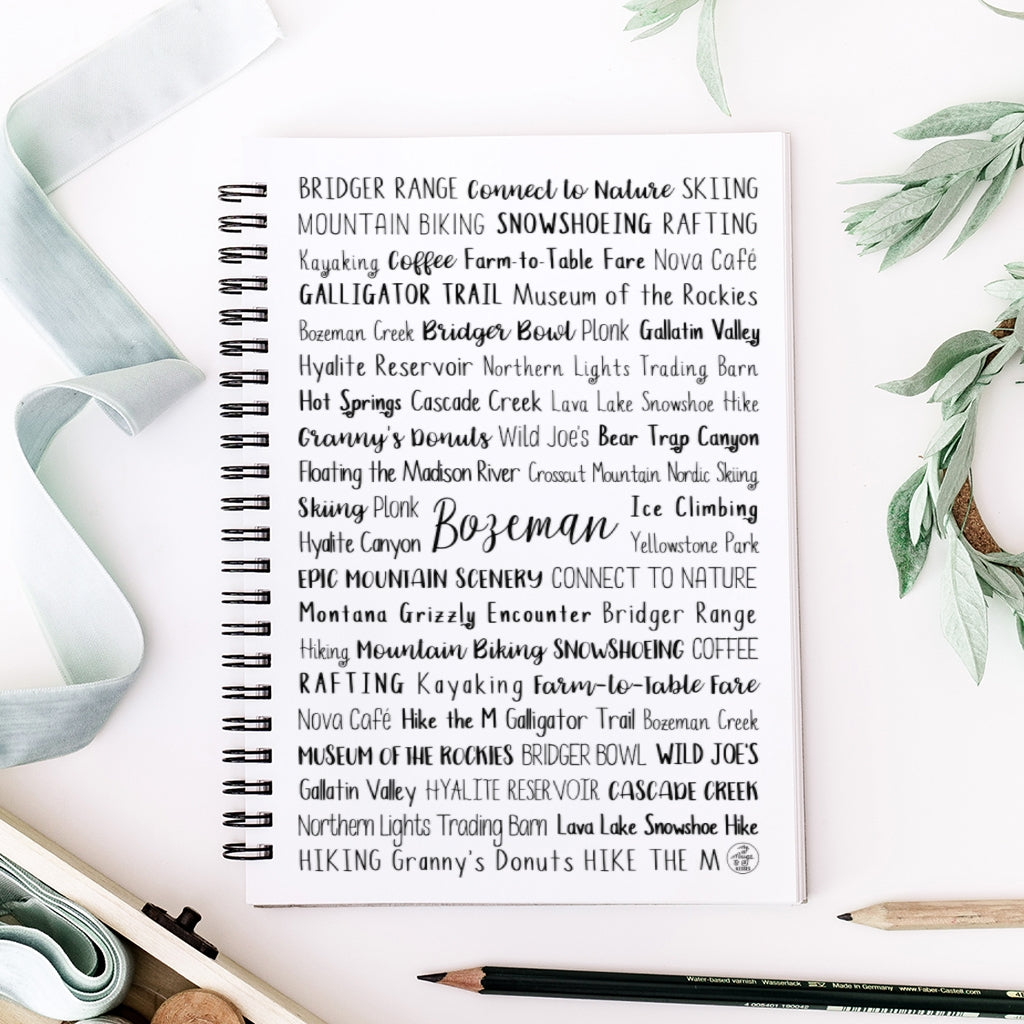 BRIDGER RANGE Connect to Nature SKIING
MOUNTAIN BIKING SNOWSHOEING RAFTING
Kayaking Coffee Farm-to-Table Fare Nova Café
GALLIGATOR TRAIL Museum of the Rockies
Bozeman Creek Bridger Bowl Plonk Gallatin Valley
Hyalite Reservoir Northern Lights Trading Barn
Hot Springs Cascade Creek Lava Lake Snowshoe Hike
Granny's Donuts Wild Joe's Bear Trap Canyon
Floating the Madison River Crosscut Mountain Nordic Skiing
Skiing Plonk
Hyalite Canyon
Bozeman
Ice Climbing
Yellowstone Park
EPIC MOUNTAIN SCENERY CONNECT TO NATURE
Montana Grizzly Encounter Bridger Range
Hiking Mountain Biking SNOWSHOEING COFFEE
RAFTING Kayaking Farm-to-Table Fare
Nova Café Hike the M Galligator Trail Bozeman Creek
MUSEUM OF THE ROCKIES BRIDGER BOWL WILD JOE'S
Gallatin Valley HYALITE RESERVOIR CASCADE CREEK
Northern Lights Trading Barn Lava Lake Snowshoe Hike
HIKING Granny's Donuts HIKE THE M
Water-based varnish Wasserlack Made in Germany www.Faber-Castell.com
4 005401 190042